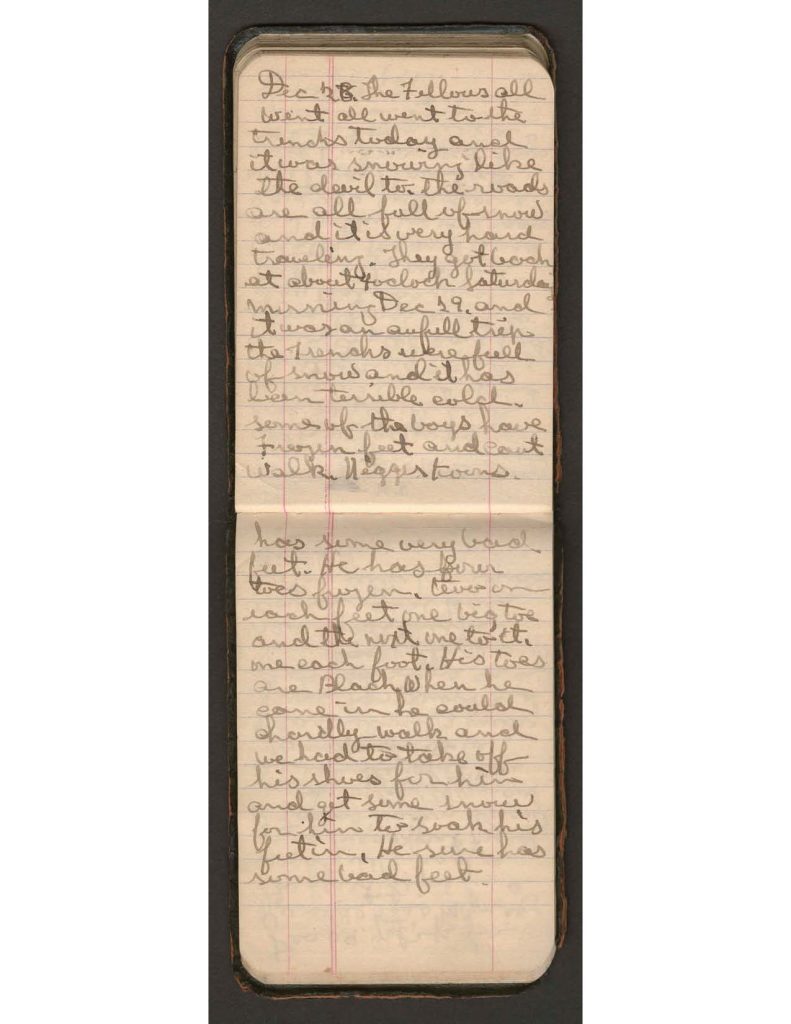 Dec 28. The Fellows all
went all went to the
trenchs today and
it was snowing like
the devil to. the roads
are all full of snow
and it is very hard
traveling. They got back
at about 4 oclock Saturday
morning Dec 29. and
it was an awfull trip
the Trenchs were full
of snow and it has
been terrible cold.
some of the boys have
Frozen feet and cant
walk.
has some very bad
feet. He has four
toes frozen. two on
each feet one big toe
and the next one to it.
one each foot. His toes
are Black When he
came in he could
hardly walk and
we had to take off
his shoes for him
and get some snow
for him to soak his
feet in. He sure has
some bad feet.